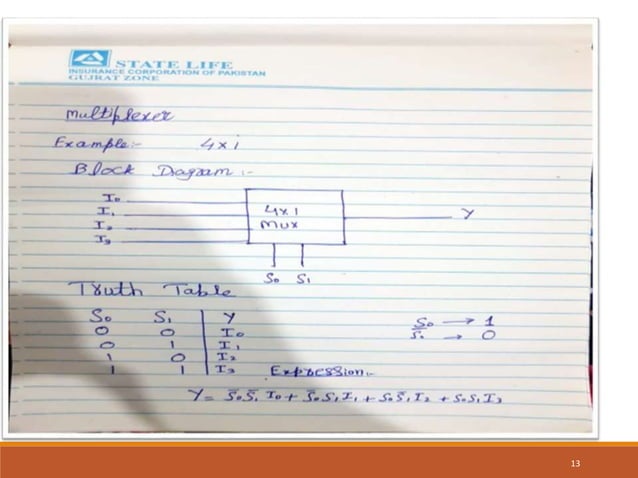 STATE LIFE
INSURANCE CORPORATION OF PAKISTAN
GUJRAT ZONE
Multiplexer
Example:- 4x1
Block Diagram :-
I₀
I₁
I₂
I₃
4x1
MUX
Y
S₀ S₁
Truth Table
S₀ S₁ Y
0 0 I₀
0 1 I₁
1 0 I₂
1 1 I₃
S₀ → 1
S̅₀ → 0
Expression:-
Y = S̅₀S̅₁I₀ + S̅₀S₁I₁ + S₀S̅₁I₂ + S₀S₁I₃
13